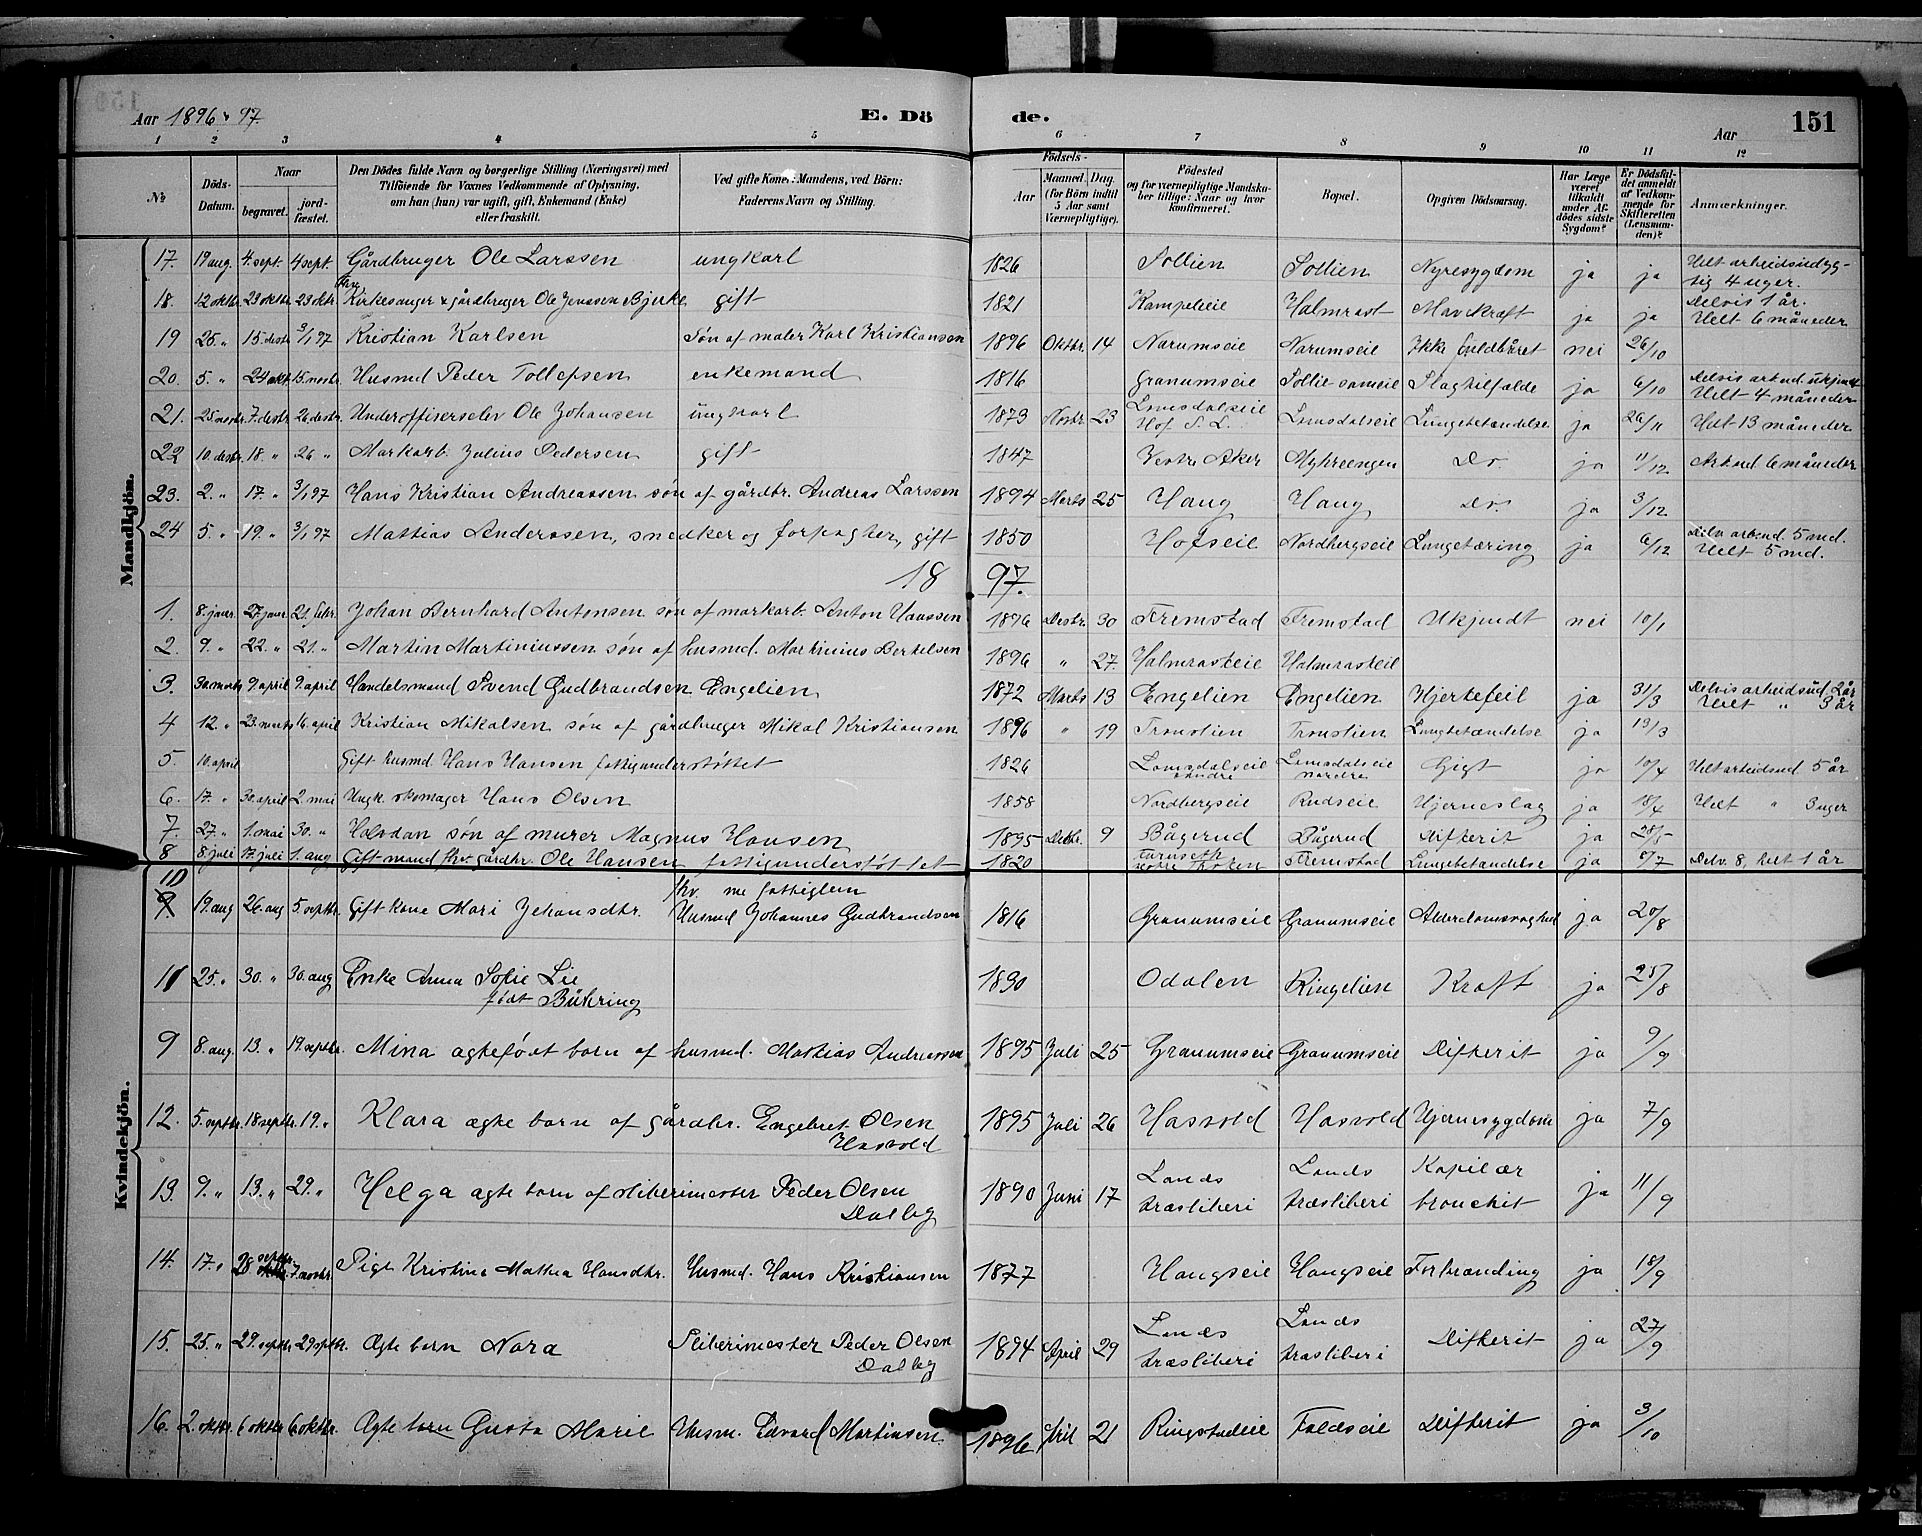 Aar 1896 & 97.
E. Dö
de.
Aar
151
1 2 3 4 5 6 7 8 9 10 11 12
No
Döds-Datum.
Naar
begravet.
jord-fæstet.
Den Dödes fulde Navn og borgerlige Stilling (Næringsvei) med
Tilföiende for Voxnes Vedkommende af Oplysning,
om han (hun) var ugift, gift, Enkemand (Enke)
eller fraskilt.
Ved gifte Koner: Mandens, ved Börn:
Faderens Navn og Stilling.
Födsels-
Aar
Maaned. Dag.
(for Börn indtil
5 Aar samt
Værnepligtige).
Födested
og for værnepligtige Mandska-
ber tillige: Naar og hvor
konfirmeret.
Bopæl.
Opgiven Dödsaarsag.
Har Læge
været
tilkaldt
under Af-
dödes sidste
Sygdom?
Er Dödsfal-
det anmeldt
af Vedkom-
mende for
Skifteretten
(Lensman-
den)?
Anmærkninger.
Mandkjön.
17. 19 aug. 4. sept. 4 sept. Gårdbruger Ole Larssen ungkarl 1826 Sollien Sollien Nyresygdom ja ja Helt arbeidsudyg-
tig 4 uger.
18. 12 oktbr. 23 oktbr. 23 oktr. Kirkesanger & gårdbruger Ole Jenssen Bjerke gift 1821 Kampeleie Halmrast Mavekræft ja ja Delvis 1 år.
Helt 6 måneder
19 25. " 15. destr. 3/1 97 Kristian Karlsen Søn af maler Karl Kristiansen 1896 Oktbr. 14 Narumseie Narumseie Ikke fuldbåret nei 26/10
20. 5. " 24 okt. 15. novbr. Husmd Peder Tollefsen enkemand 1816 Granumseie Sollie Slagtilfælde ja 6/10 Delvis arbud. ukjendt
Helt 4 måneder
21. 25. novbr. 7. destr. 26 destr. Underoffiserselev Ole Johansen ungkarl 1873 Novbr. 23 Lomsdalseie
Hof S. L. Lomsdalseie Lungebetændelse ja 26/11 Helt 13 måneder
22 10 destr. 18. " 26 " Markarb. Julius Pedersen gift 1847 Vestre Aker Myhreengen Do. ja 11/12 Arbud 6 måneder
23. 2. " 17. " 3/1 97 Hans Kristian Andreassen søn af gårdbr. Andreas Larssen 1894 Marts 25 Haug Haug Do. ja 3/12
24 5. " 19. " 3/1 97 Mathias Anderssen, snedker og forpagter, gift 1850 Hofseie Nordbergseie Lungetæring ja 6/12 Delv arbeud. 5 md.
Helt 5 md.
18 97.
1. 8. janr. 27 janr. 21. febr. Johan Bernhard Antonsen søn af markarb. Anton Hanssen 1896 Destr. 30 Fremstad Fremstad Ukjendt nei 10/1
2. 9. " 22. " 21. " Martin Martiniussen søn af husmd. Martinius Bertelsen 1896 " 27. Halmrasteie Halmrasteie
3. 30. marts 9. april 9. april Handelsmand Svend Gudbrandsen Engelien 1872 Marts 13 Engelien Engelien Hjertefeil ja 31/3 Delvis arbeidsud. 2 år
Helt " 3 år
4 12. " 23. marts 16. april Kristian Mikalsen søn af gårdbruger Mikal Kristiansen 1896 " 19 Tronslien Tronslien Lungbetændelse ja 13/3
5. 10. april Gift husmd Hans Hansen fattigunderstøttet 1826 Lomsdalseie
søndre Lomsdalseie
nordre Gigt ja 10/4 Helt arbeidsud. 5 år
6. 17. " 30. april 2. mai Ungk. skomager Hans Olsen 1858 Nordbergseie Rudseie Hjerneslag ja 18/4 Helt " 3 uger
7. 27. " 1. mai 30. " Halvdan søn af murer Magnus Hansen 1895 Decbr. 9 Bågerud Bågerud Difterit ja 28/5
8 8. juli 17 juli 1. aug Gift mand fhv. gårdbr. Ole Hansen fattigunderstøttet 1820 Vestre Thoten Fremstad Lungebetændelse ja 9/7 Delv. 8, helt 1 år
Kvindekjön.
10 19. aug 26. aug 5. septbr. Gift kone Mari Johansdtr. fhv. nu fattiglem
Husmd Johannes Gudbrandsen 1816 Granumseie Granumseie Alderdomssvaghed ja 20/8
11 25. " 30. " 30. aug Enke Anna Sofie Lie
født Bühring 1830 Odalen Ringelien Kræft ja 25/8
9 8. aug. 13. " 19. septbr. Mina ægtefødt barn af husmd. Mathias Andreassen 1895 Juli 25 Granumseie Granumseie Difterit ja 9/9
12. 5. septbr. 18 septbr. 19. " Klara ægte barn af gårdbr. Engebret Olsen
Hasvold 1895 Juli 26 Hasvold Hasvold Hjernesygdom ja 7/9
13. 9. " 13. " 29. " Helga ægte barn af sliberimester Peder Olsen
Dalby 1890 Juni 17 Lands
træsliberi Lands
træsliberi Kapilær
bronchit ja 11/9
14. 17. " 28 septbr. 7. novbr. Pige Kristine Mathea Hansdtr. Husmd. Hans Kristiansen 1877 Haugseie Haugseie Forbrænding ja 18/9
15. 25. " 29. septbr. 29 septbr. Ægte barn Nora Sliberimester Peder Olsen
Dalby 1894 April 29 Lands
træsliberi Lands
træsliberi Difterit ja 27/9
16. 2 oktbr. 6 oktbr. 6 oktbr. Ægte barn Gusta Marie Husm. Edvard Martinsen 1896 April 21 Ringstadeie Faldseie Difterit ja 3/10